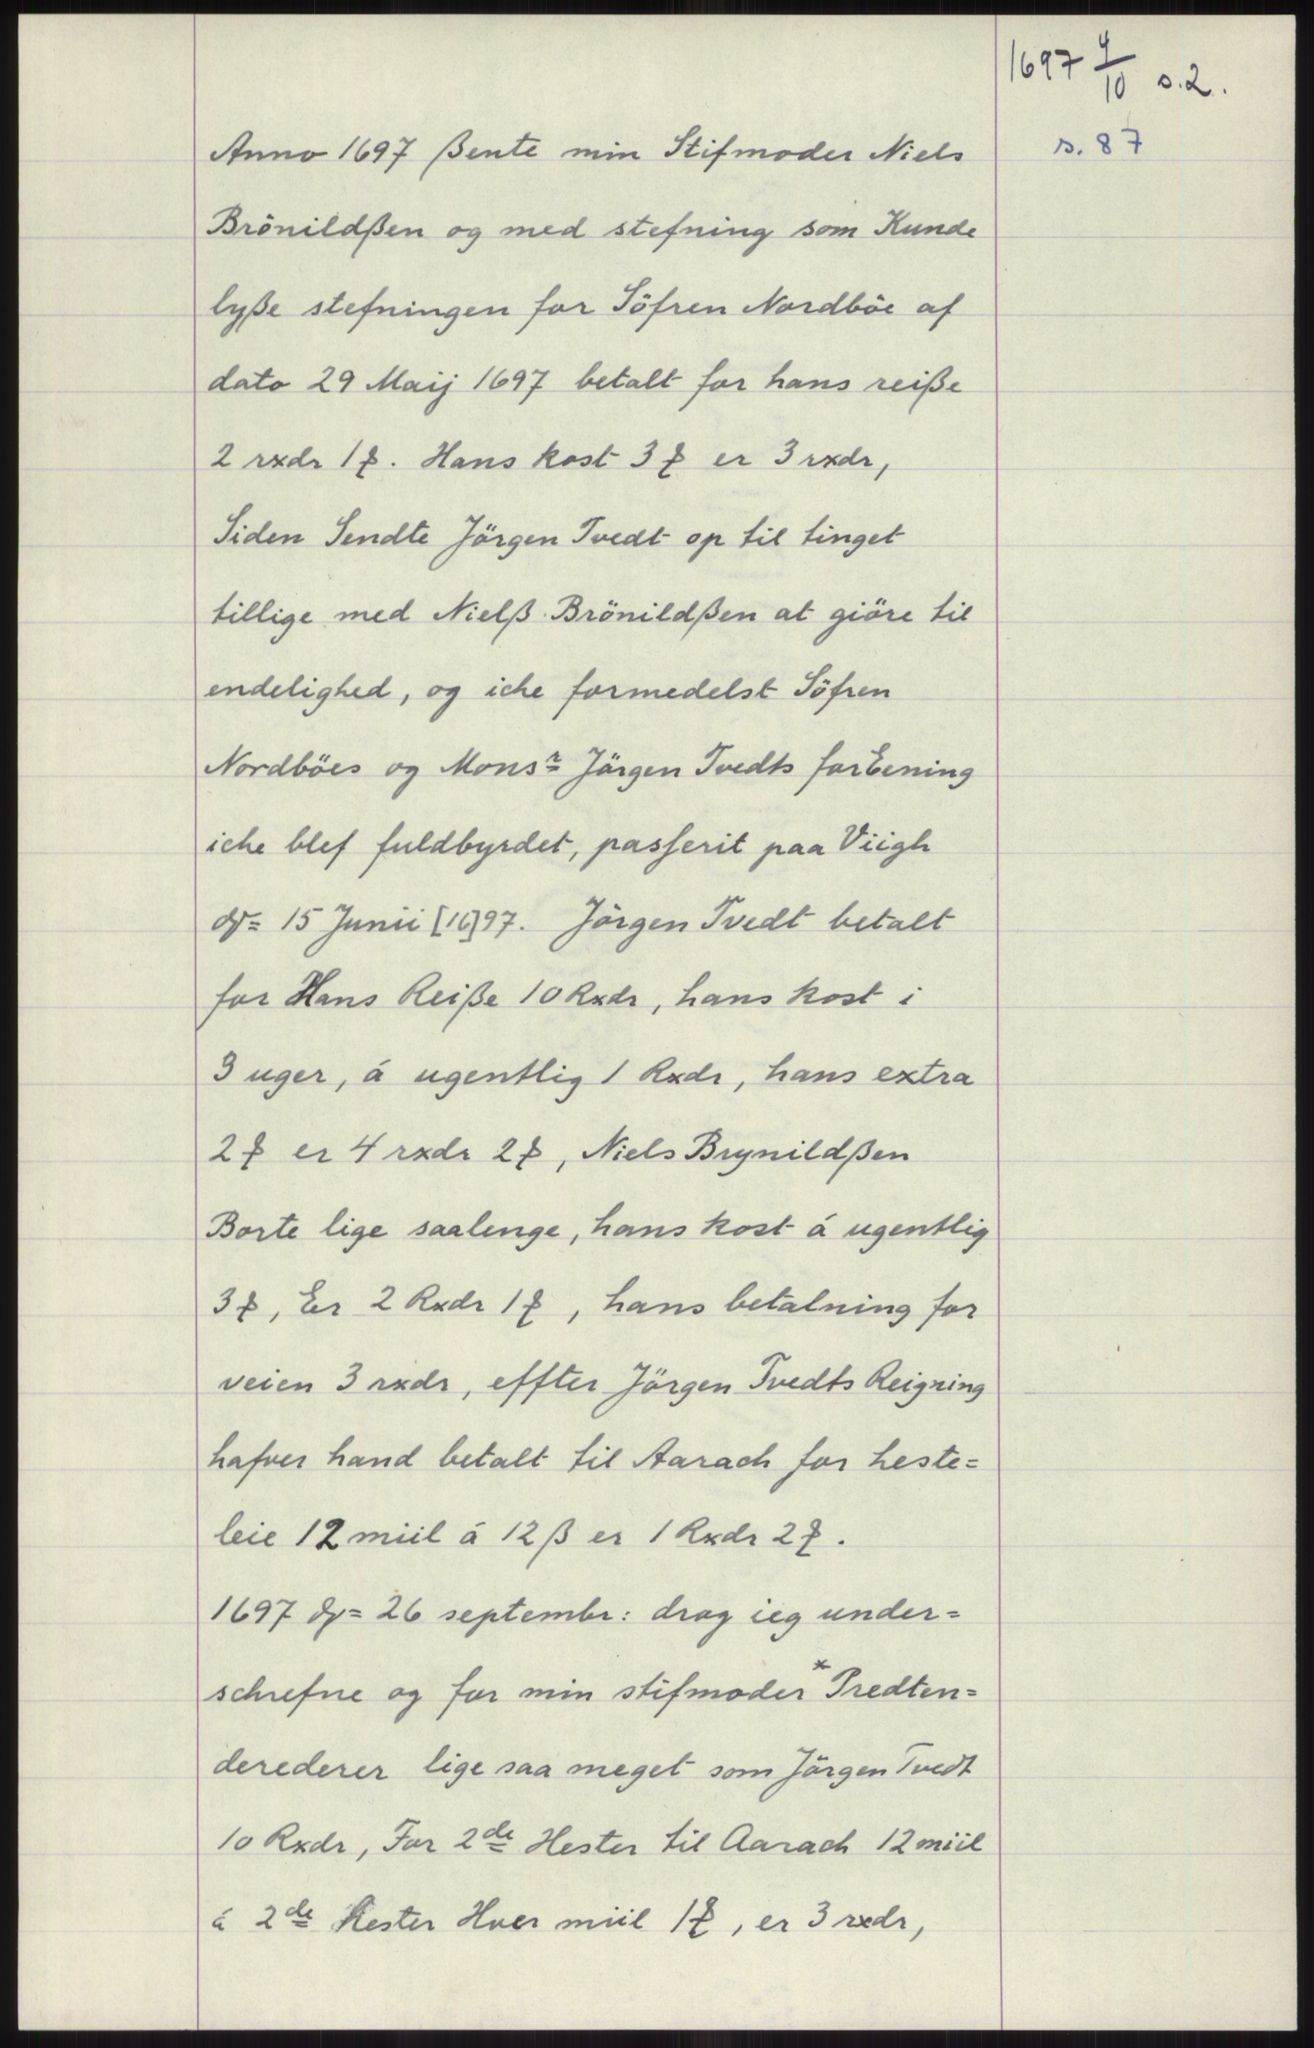 1697 4/10 s.2.
s. 87
Anno 1697 ßente min Stifmoder Niels
Brönildßen og med stefning som Kunde
lyße stefningen for Söfren Nordböe af
dato 29 Maij 1697 betalt for hans reiße
2 rxdr 1 ƶ. Hans kost 3 ƶ er 3 rxdr,
Siden Sendte Jörgen Tvedt op til tinget
tillige med Nielß Brönildßen at giöre til
endelighed, og iche formedelst Söfren
Nordböes og Monsr Jörgen Tvedts forEening
iche blef fuldbyrdet, passerit paa Viigh
15 Junii [16]97. Jörgen Tvedt betalt
for Hans Reiße 10 Rxdr, hans kost i
3 uger, á ugentlig 1 Rxdr, hans extra
2 ƶ er 4 rxdr 2 ƶ, Niels Brynildßen
Borte lige saalenge, hans kost á ugentlig
3 ƶ, Er 2 Rxdr 1 ƶ, hans betalning for
veien 3 rxdr, effter Jörgen Tvedts Reigning
hafver hand betalt til Aarach for heste=
leie 12 miil á 12 ß er 1 Rxdr 2 ƶ.
1697 26 septembr: drog ieg under=
schrefne og for min stifmoder * Predten=
derederer lige saa meget som Jörgen Tvedt
10 Rxdr, For 2de Hester til Aarach 12 miil
á 2de Hester Hver miil 1 ƶ, er 3 rxdr,